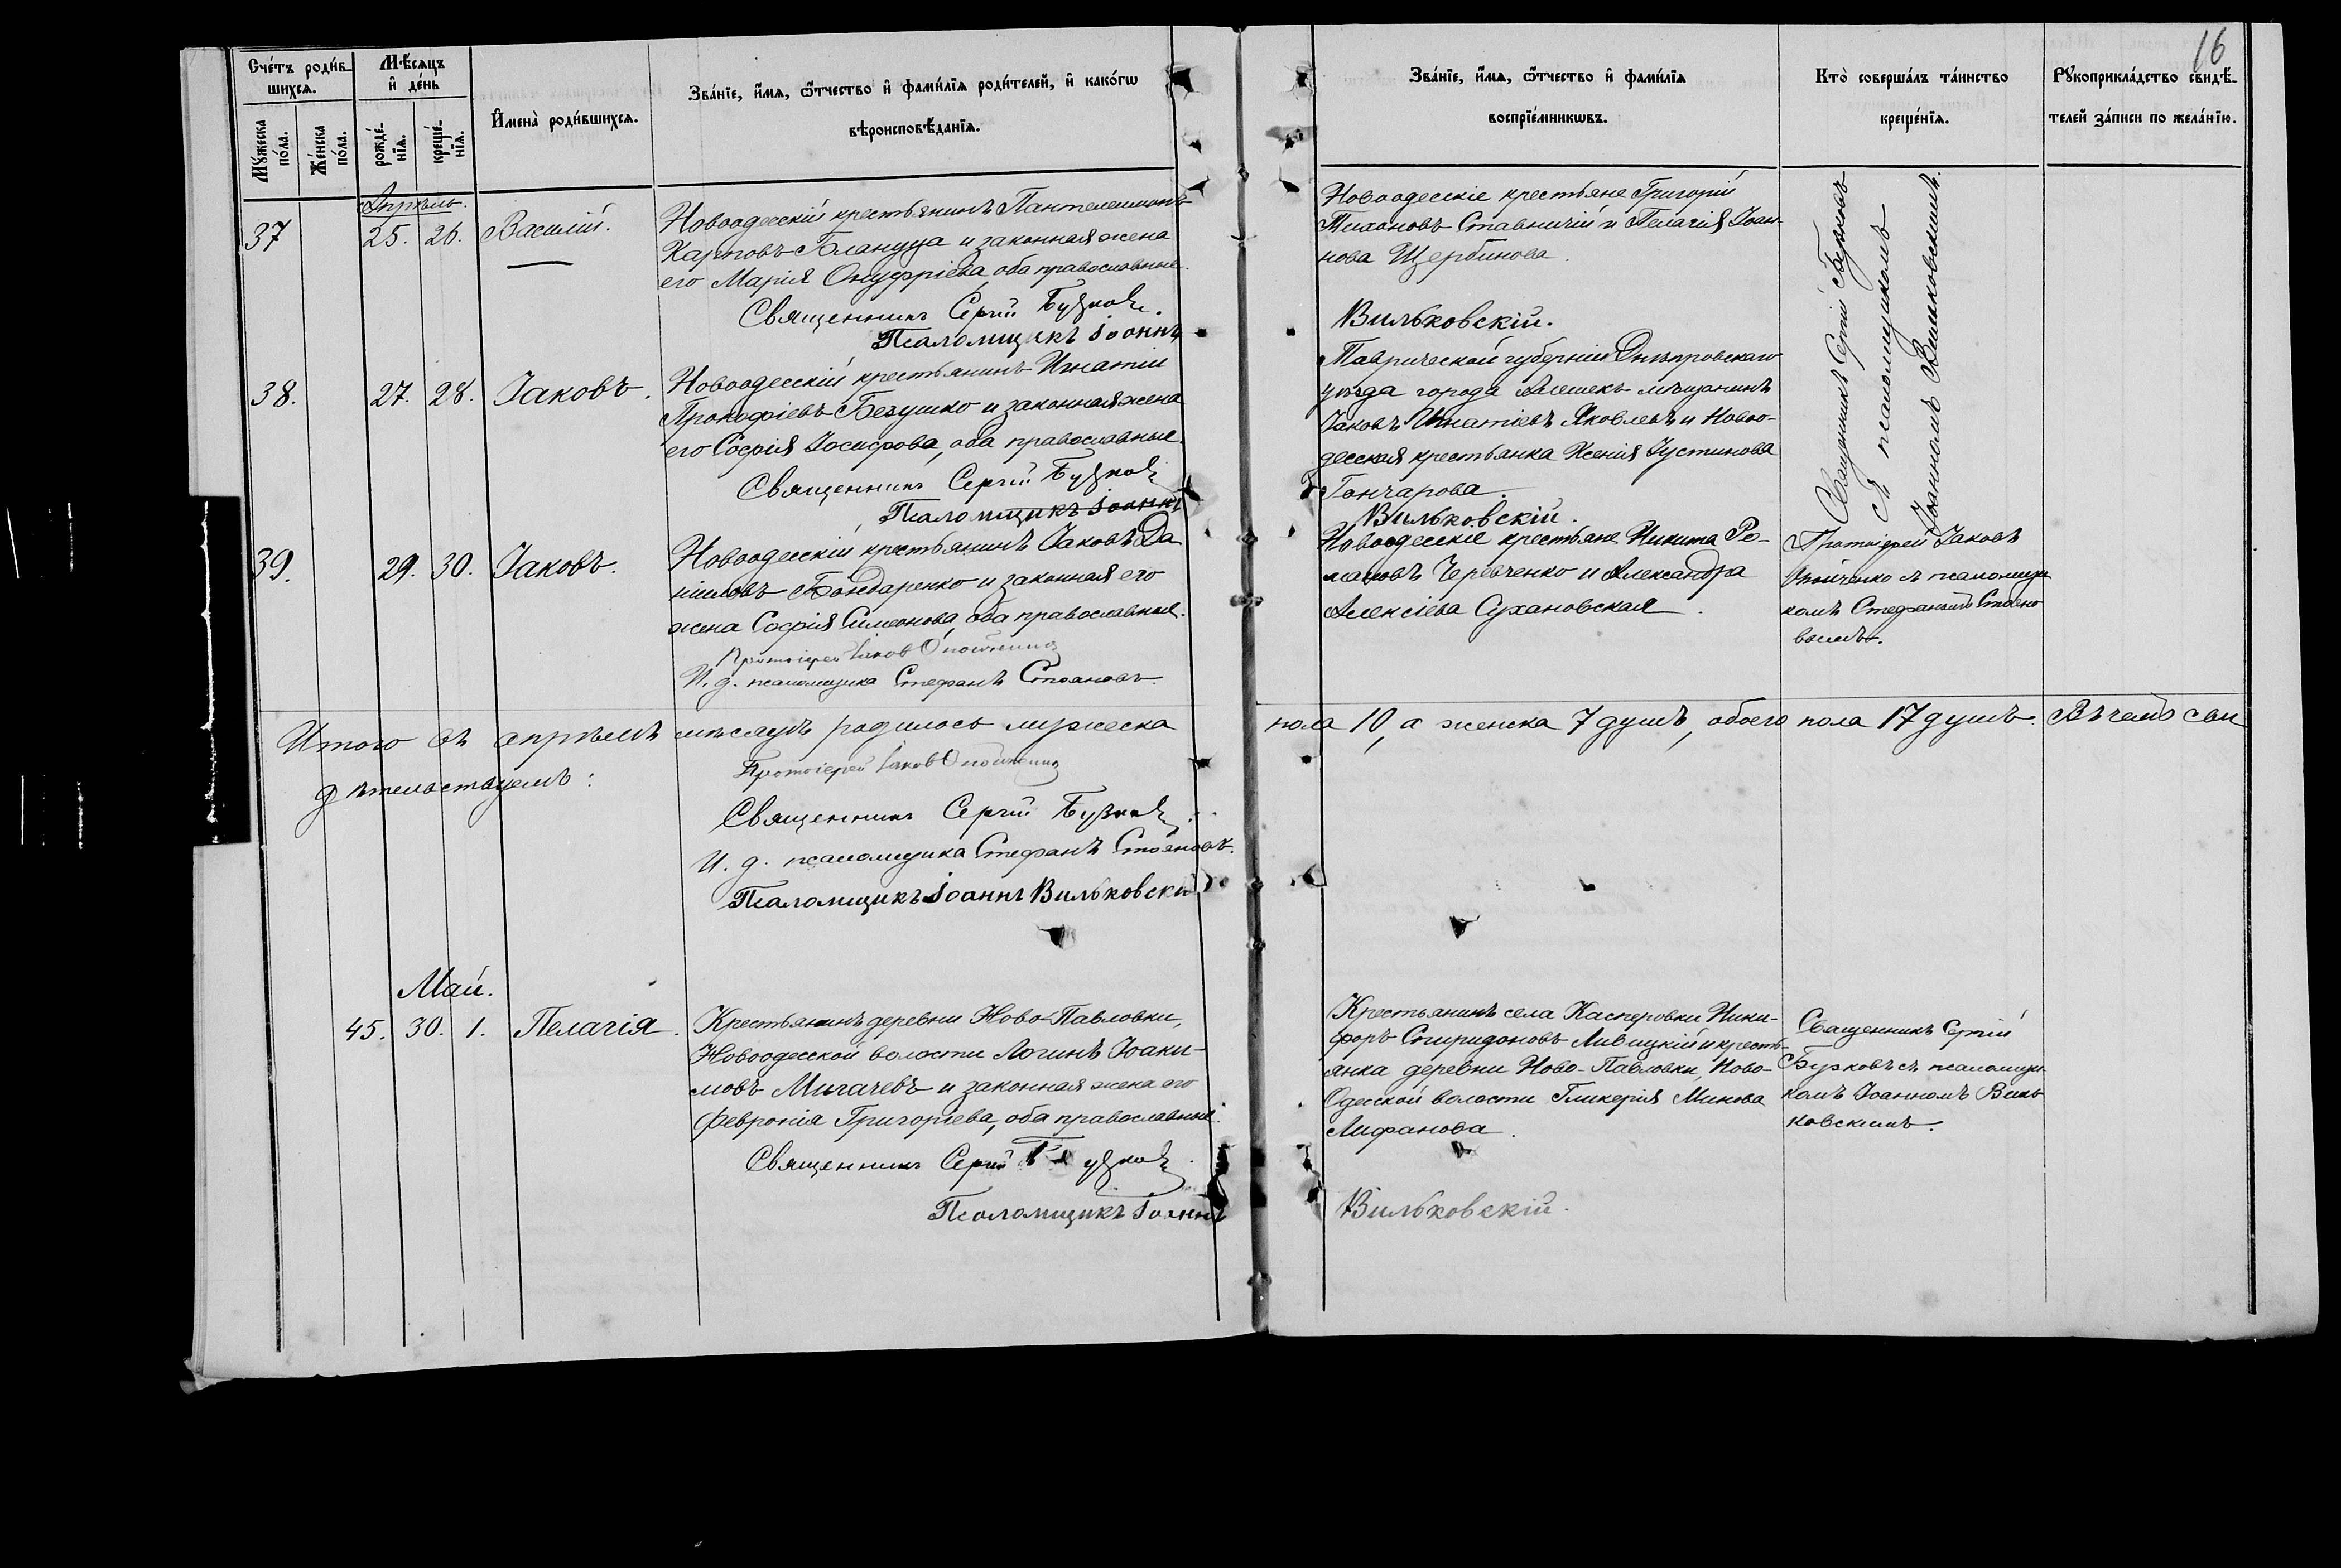 16
Счетъ родившихся.
Мѣсяцъ и день
Имена родившихся.
Званіе, имя, отчество и фамилія родителей, и какого
вѣроисповѣданія.
Мужеска пола.
Женска пола.
рожденія.
крещенія.
Званіе, имя, отчество и фамилія
воспріемниковъ.
Кто совершалъ таинство
крещенія.
Рукоприкладство свидѣ-
телей записи по желанію.
Апрѣль.
37 25. 26. Василій.
Новоодесскій крестьянинъ Пантелеимонъ
Карповъ Блануца и законная жена
его Марія Онуфріева, оба православные.
Священникъ Сергій Бузковъ.
Псаломщикъ Іоаннъ
Новоодесскіе крестьяне Григорій
Тихоновъ Ставничій и Пелагія Іоан-
нова Щербинова.
Вильковскій.
Священникъ Сергій Бузковъ
съ псаломщикомъ
Іоанномъ Вильковскимъ.
38. 27. 28. Іаковъ.
Новоодесскій крестьянинъ Игнатій
Прокофіевъ Безушко и законная жена
его Софія Іосифова, оба православные.
Священникъ Сергій Бузковъ
Псаломщикъ Іоаннъ
Таврической губерніи Днѣпровскаго
уѣзда города Алешекъ мѣщанинъ
Іаковъ Игнатіевъ Яковлевъ и Новоо-
десская крестьянка Ксенія Іустинова
Гончарова.
Вильковскій.
39. 29. 30. Іаковъ.
Новоодесскій крестьянинъ Іаковъ Да
ніиловъ Бондаренко и законная его
жена Софія Симеонова, оба православные.
Протоіерей Іаковъ
И. д. псаломщика Стефанъ Стояновъ.
Новоодесскіе крестьяне Никита Ро-
мановъ Черевченко и Александра
Алексіева Сухановская.
Протоіерей Іаковъ
съ псаломщи
комъ Стефаномъ Стояно
вымъ.
Итого въ апрѣлѣ мѣсяцѣ родилось мужеска пола 10, а женска 7 душъ, обоего пола 17 душъ. Въ чемъ сви
дѣтельствуемъ:
Протоіерей Іаковъ
Священникъ Сергій Бузковъ.
И. д. псаломщика Стефанъ Стояновъ.
Псаломщикъ Іоаннъ Вильковскій
Май.
45. 30. 1. Пелагія.
Крестьянинъ деревни Ново-Павловки,
Новоодесской волости Логинъ Іоаки-
мовъ Мигачевъ и законная жена его
Февронія Григоріева, оба православные.
Священникъ Сергій Бузковъ
Псаломщикъ Іоаннъ
Крестьянинъ села Касперовки Ники-
форъ Спиридоновъ Ливицкій и кресть-
янка деревни Ново-Павловки, Ново-
Одесской волости Гликерія Минова
Лифанова.
Вильковскій.
Священникъ Сергій
Бузковъ съ псаломщи
комъ Іоанномъ Виль
ковскимъ.